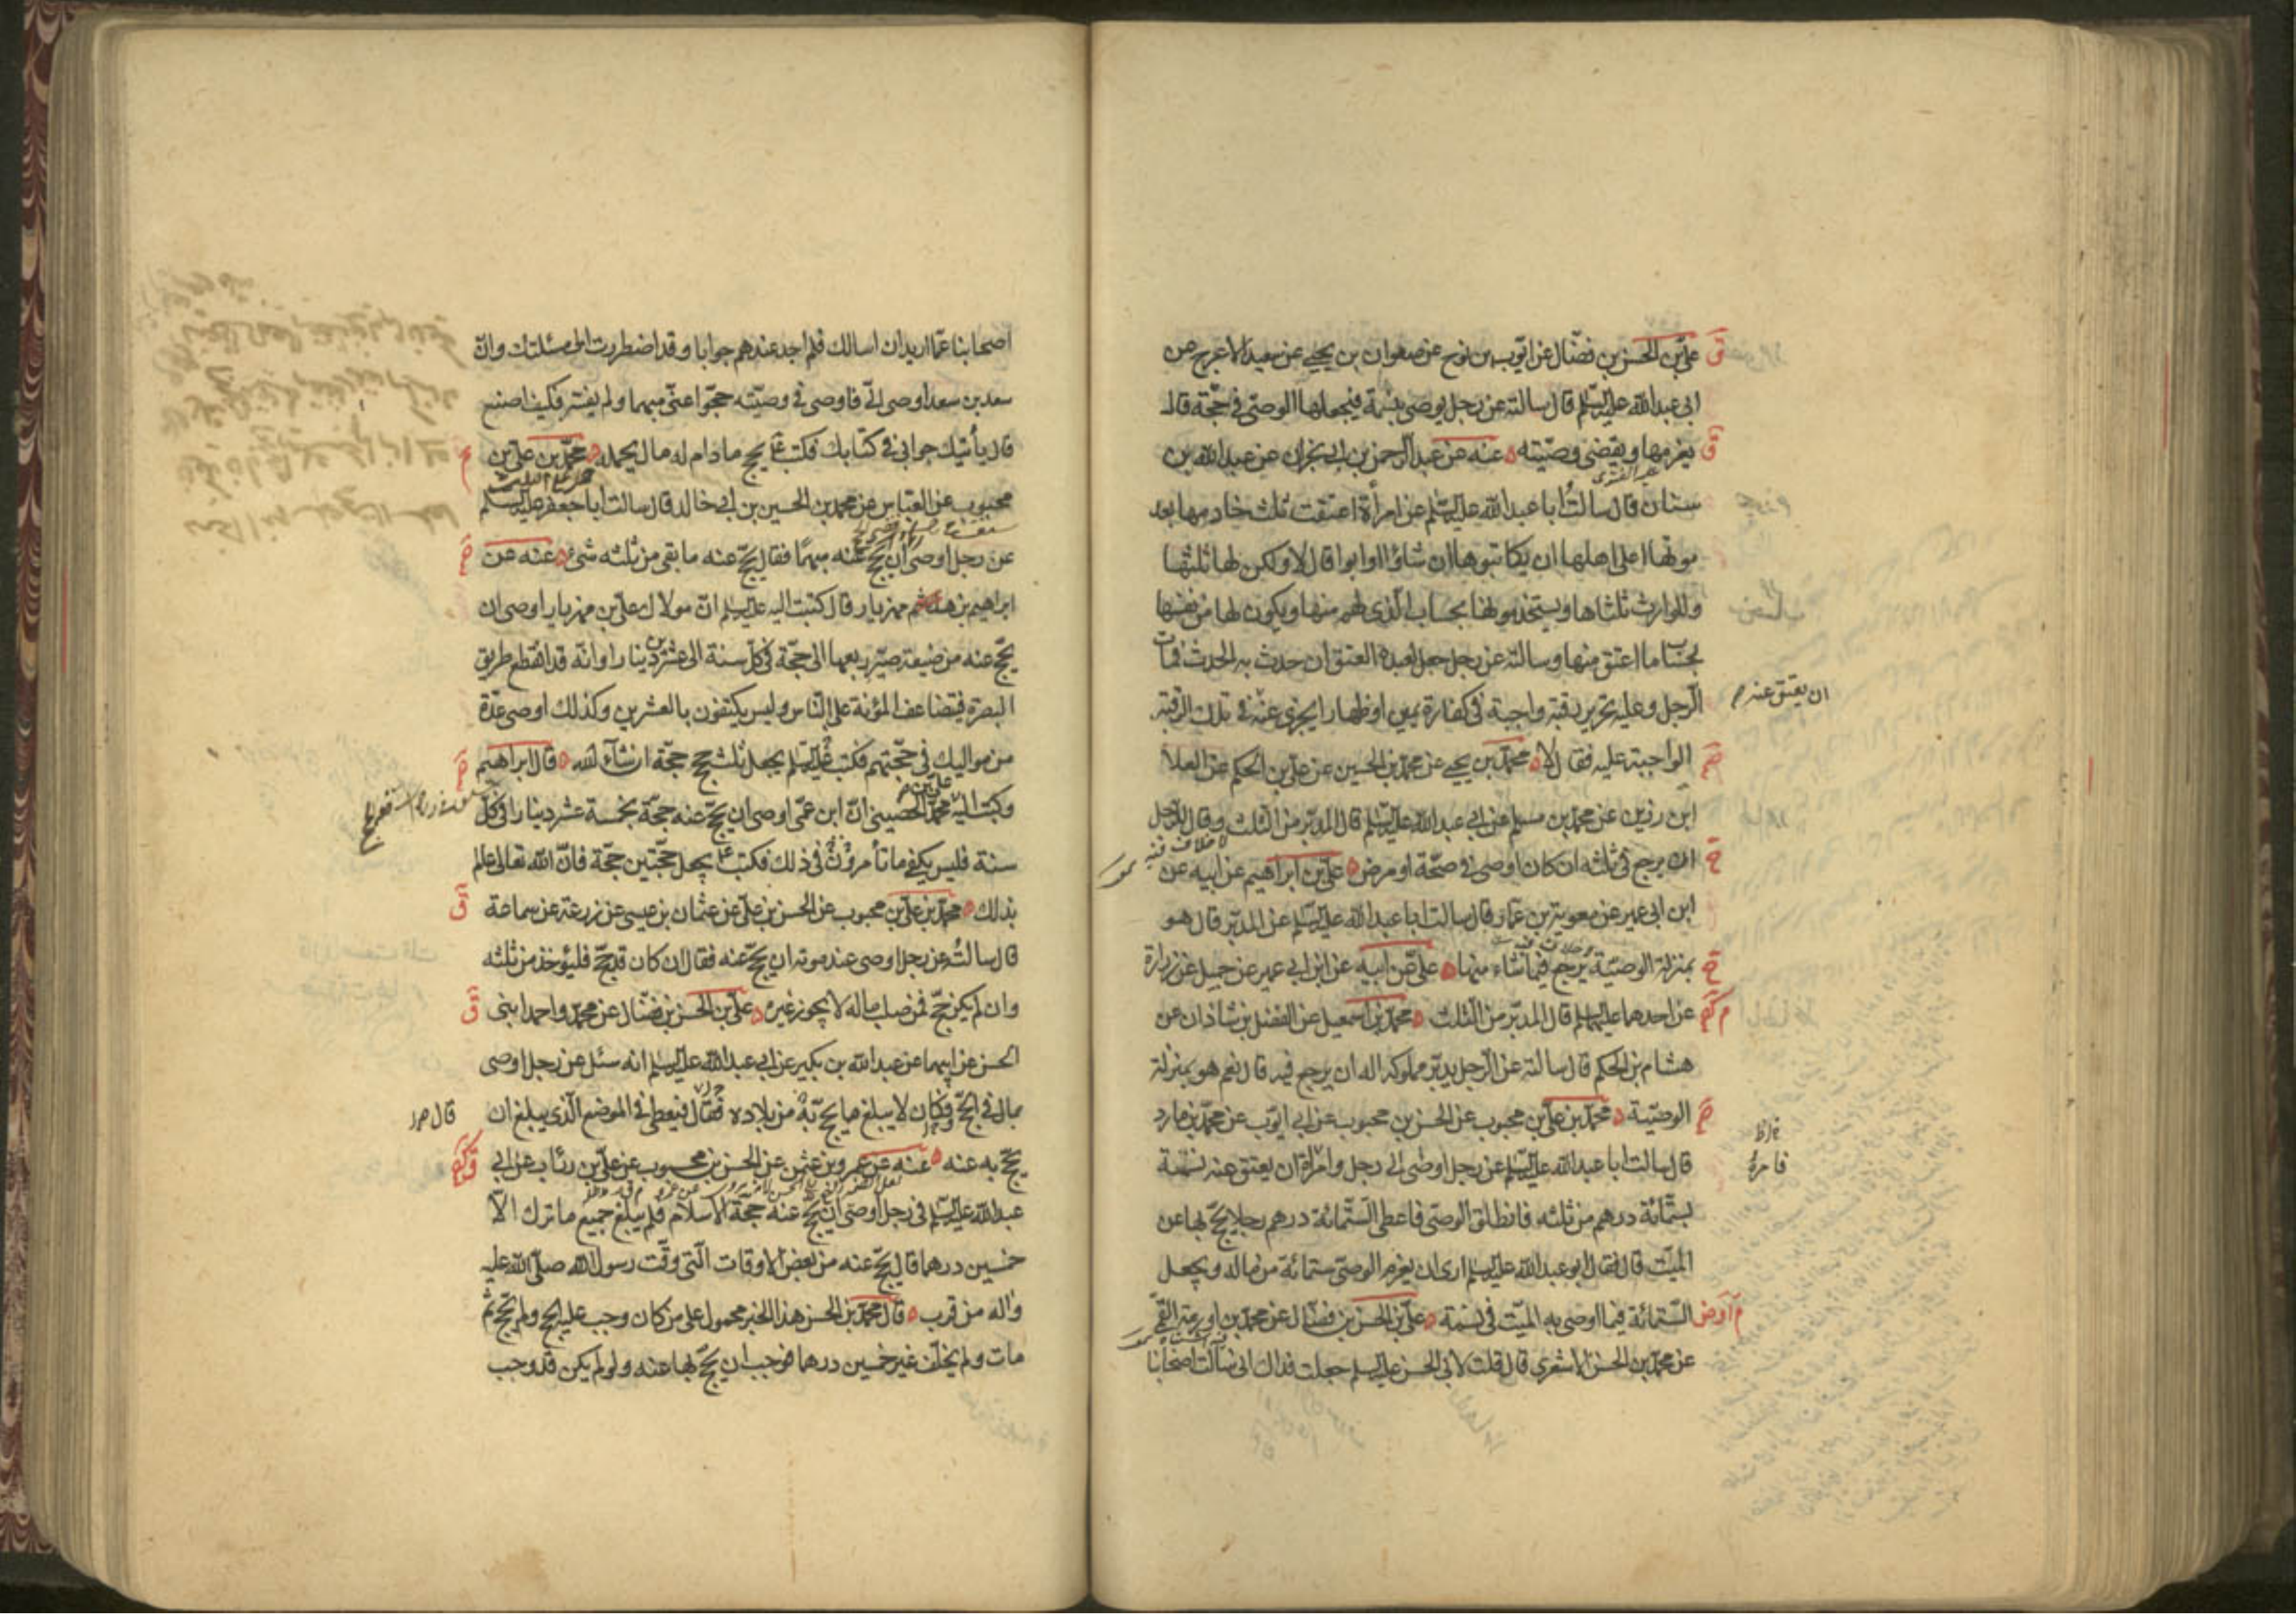 علي بن الحسن بن فضال عن ايوب بن نوح عن صفوان بن يحيى عن سعيد الاعرج عن
ابى عبد الله عليه السلم قال سالته عن رجل يوصى بنسمة فيجعلها الوصى فى حجة قال
يغرمها ويقضى وصيته عنه عن عبد الرحمن بن ابى نجران عن عبد الله بن
سنان قال سالت ابا عبد الله عليه السلم عن امرأة اعتقت ثلث خادمها بعد
موتها اعلى اهلها ان يكاتبوها ان شاؤا او ابوا قال لا ولكن لها ثلثها
وللوارث ثلثاها ويستخدمونها بحساب الذى لهم منها ويكون لها من نفسها
بحساب ما اعتق منها وسالته عن رجل جعل لعبده العتق ان حدث به الحدث فمات
الرجل وعليه تحرير رقبة واجبة فى كفارة يمين او ظهار ايجزى عنه فى تلك الرقبة
ان يعتق عنه
الواجبة عليه فقال لا محمد بن يحيى عن محمد بن الحسين عن علي بن الحكم عن العلا
ابن رزين عن محمد بن مسلم عن ابى عبد الله عليه السلم قال المدبر من الثلث وقال للرجل
ان يرجع فى ثلثه ان كان اوصى فى صحة او مرض علي بن ابراهيم عن ابيه عن
ابن ابى عمير عن معوية بن عمار قال سالت ابا عبد الله عليه السلم عن المدبر قال هو
بمنزلة الوصية يرجع فيما شاء منها علي عن ابيه عن ابن ابى عمير عن جميل عن زرارة
عن احدهما عليهما السلم قال المدبر من الثلث محمد بن اسمعيل عن الفضل بن شاذان عن
هشام بن الحكم قال سالته عن الرجل يدبر مملوكه اله ان يرجع فيه قال نعم هو بمنزلة
الوصية محمد بن علي بن محبوب عن الحسن بن محبوب عن ابى ايوب عن محمد بن مارد
قال سالت ابا عبد الله عليه السلم عن رجل اوصى الى رجل وامراة ان يعتق عنه نسمة
بستمائة درهم من ثلثه فانطلق الوصى فاعطى الستمائة درهم رجلا يحج بها عن
الميت قال فقال ابو عبد الله عليه السلم ارى ان يغرم الوصى ستمائة من ماله ويجعل
الستمائة فيما اوصى به الميت فى نسمة علي بن الحسن بن فضال عن محمد بن اورمة القمي
عن محمد بن الحسن الاشعرى قال قلت لابى الحسن عليه السلم جعلت فداك انى سالت اصحابنا
اصحابنا عما اريد ان اسالك فلم اجد عندهم جوابا وقد اضطررت الى مسئلتك وان
سعد بن سعد اوصى الى فاوصى فى وصيته حجوا عنى مبهما ولم يفسر فكيف اصنع
قال يأتيك جوابى فى كتابك فكتب يحج ما دام له مال يحمله محمد بن علي بن
محبوب عن العباس عن محمد بن الحسين بن ابى خالد قال سالت ابا جعفر عليه السلم
عن رجل اوصى ان يحج عنه مبهما فقال يحج عنه ما بقى من ثلثه شئ عنه عن
ابراهيم بن مهزيار قال كتبت اليه عليه السلم ان مولاك علي بن مهزيار اوصى ان
يحج عنه من ضيعة صير ربعها الى حجة فى كل سنة الى عشرين دينارا وانه قد انقطع طريق
البصرة فيتضاعف المؤنة على الناس وليس يكتفون بالعشرين وكذلك اوصى عدة
من مواليك فى حجتهم فكتب عليه السلم يجعل ثلث حجج حجة ان شاء الله قال ابراهيم
وكتب اليه علي بن محمد الحصينى ان ابن عمى اوصى ان يحج عنه حجة بخمسة عشر دينارا فى كل
سنة فليس يكفى ما تأمرنى فى ذلك فكتب يجعل حجتين حجة فان الله تعالى عالم
بذلك محمد بن علي بن محبوب عن الحسن بن علي عن عثمان بن عيسى عن زرعة عن سماعة
قال سالته عن رجل اوصى عند موته ان يحج عنه فقال ان كان قد حج فليؤخذ من ثلثه
وان لم يكن حج فمن صلب ماله لا يجوز غيره علي بن الحسن بن فضال عن محمد واحمد ابنى
الحسن عن ابيهما عن عبد الله بن بكير عن ابى عبد الله عليه السلم انه سئل عن رجل اوصى
بمال فى الحج وكان لا يبلغ ما يحج به من بلاده فقال فيعطى فى الموضع الذى يبلغ ان
يحج به عنه عنه عن عمرو بن عثمن عن الحسن بن محبوب عن علي بن رئاب عن ابى
عبد الله عليه السلم فى رجل اوصى ان يحج عنه حجة الاسلام فلم يبلغ جميع ما ترك الا
خمسين درهما قال يحج عنه من بعض الاوقات التى وقت رسول الله صلى الله عليه
واله من قرب قال محمد بن الحسن هذا الخبر محمول على من كان وجب عليه الحج ولم يحج ثم
مات ولم يخلف غير خمسين درهما فوجب ان يحج بها عنه ولو لم يكن قد وجب